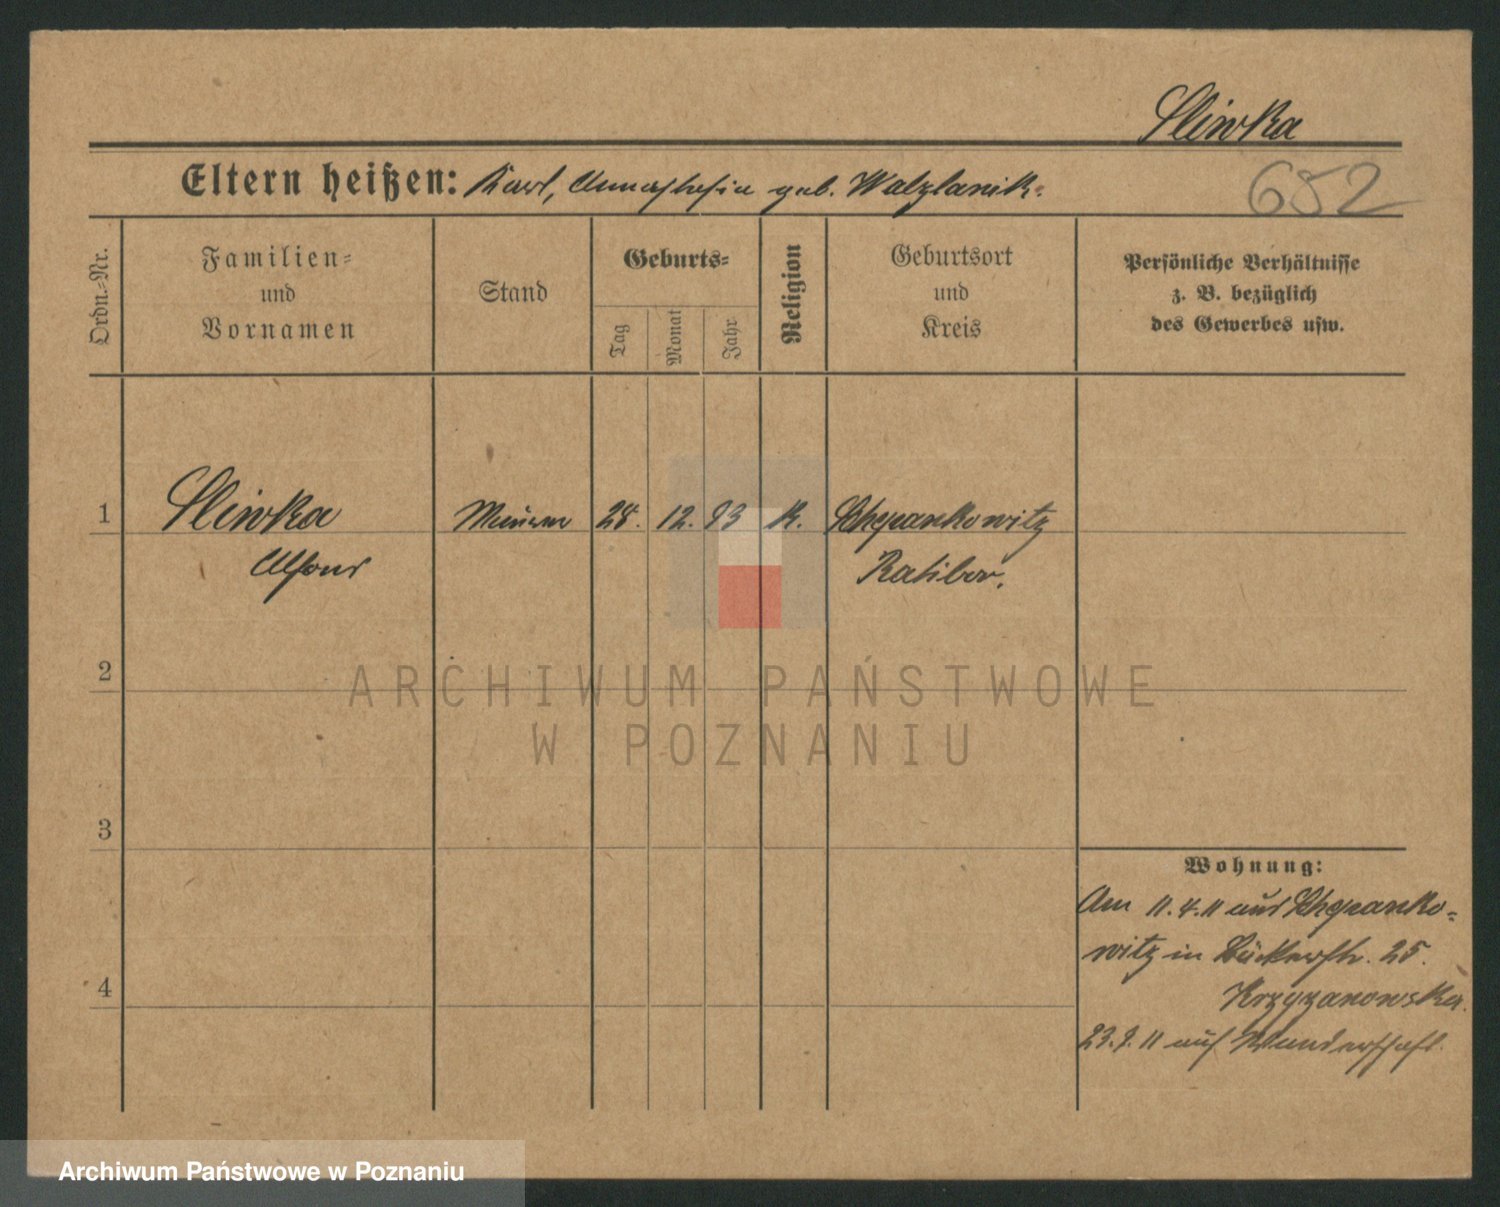 Sliwka
Eltern heißen: Karl, Anna geb.
652
Ordn.-Nr.
Familien-
und
Vornamen
Stand
Geburts-
Tag
Monat
Jahr
Religion
Geburtsort
und
Kreis
Persönliche Verhältnisse
z. B. bezüglich
des Gewerbes usw.
1 Sliwka Maurer 28. 12. 93 K.
Alfons Ratibor.
2
3
4
Wohnung:
Am 11.4.11 aus
witz in Bäckerstr. 25.
Krzyzanowska.
23.9.11 auf Wanderschaft.
ARCHIWUM PAŃSTWOWE
W POZNANIU
Archiwum Państwowe w Poznaniu